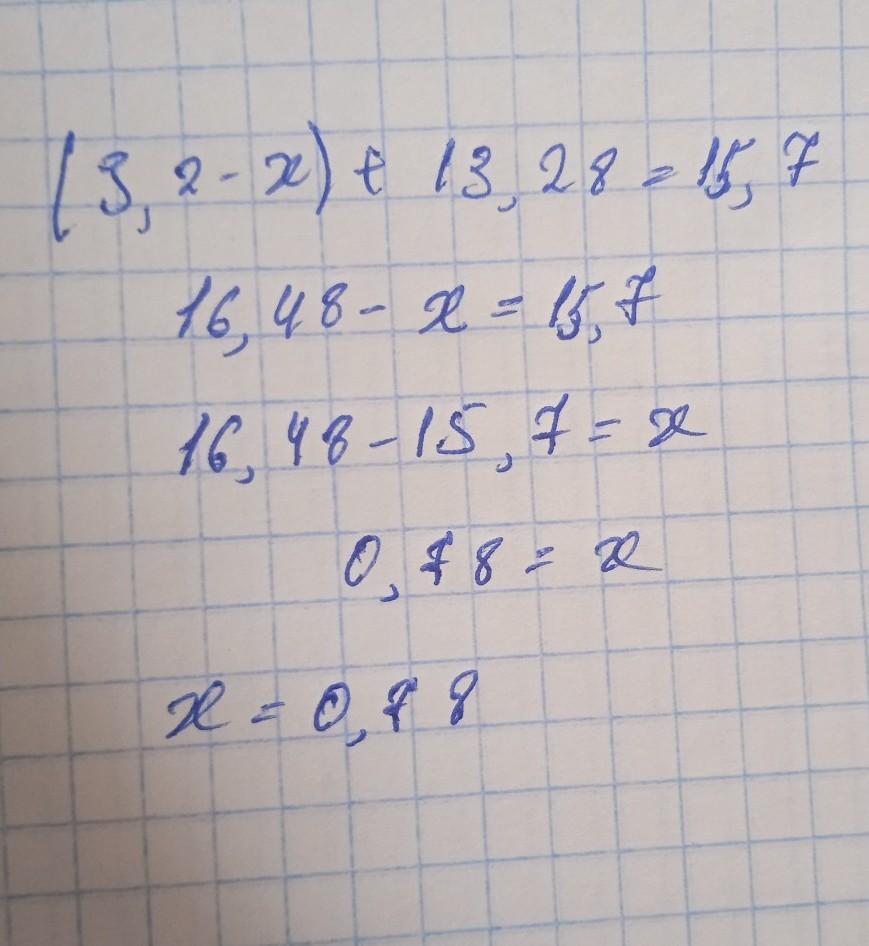 (3,2 - x) + 13,28 = 15,7
16,48 - x = 15,7
16,48 - 15,7 = x
0,78 = x
x = 0,78